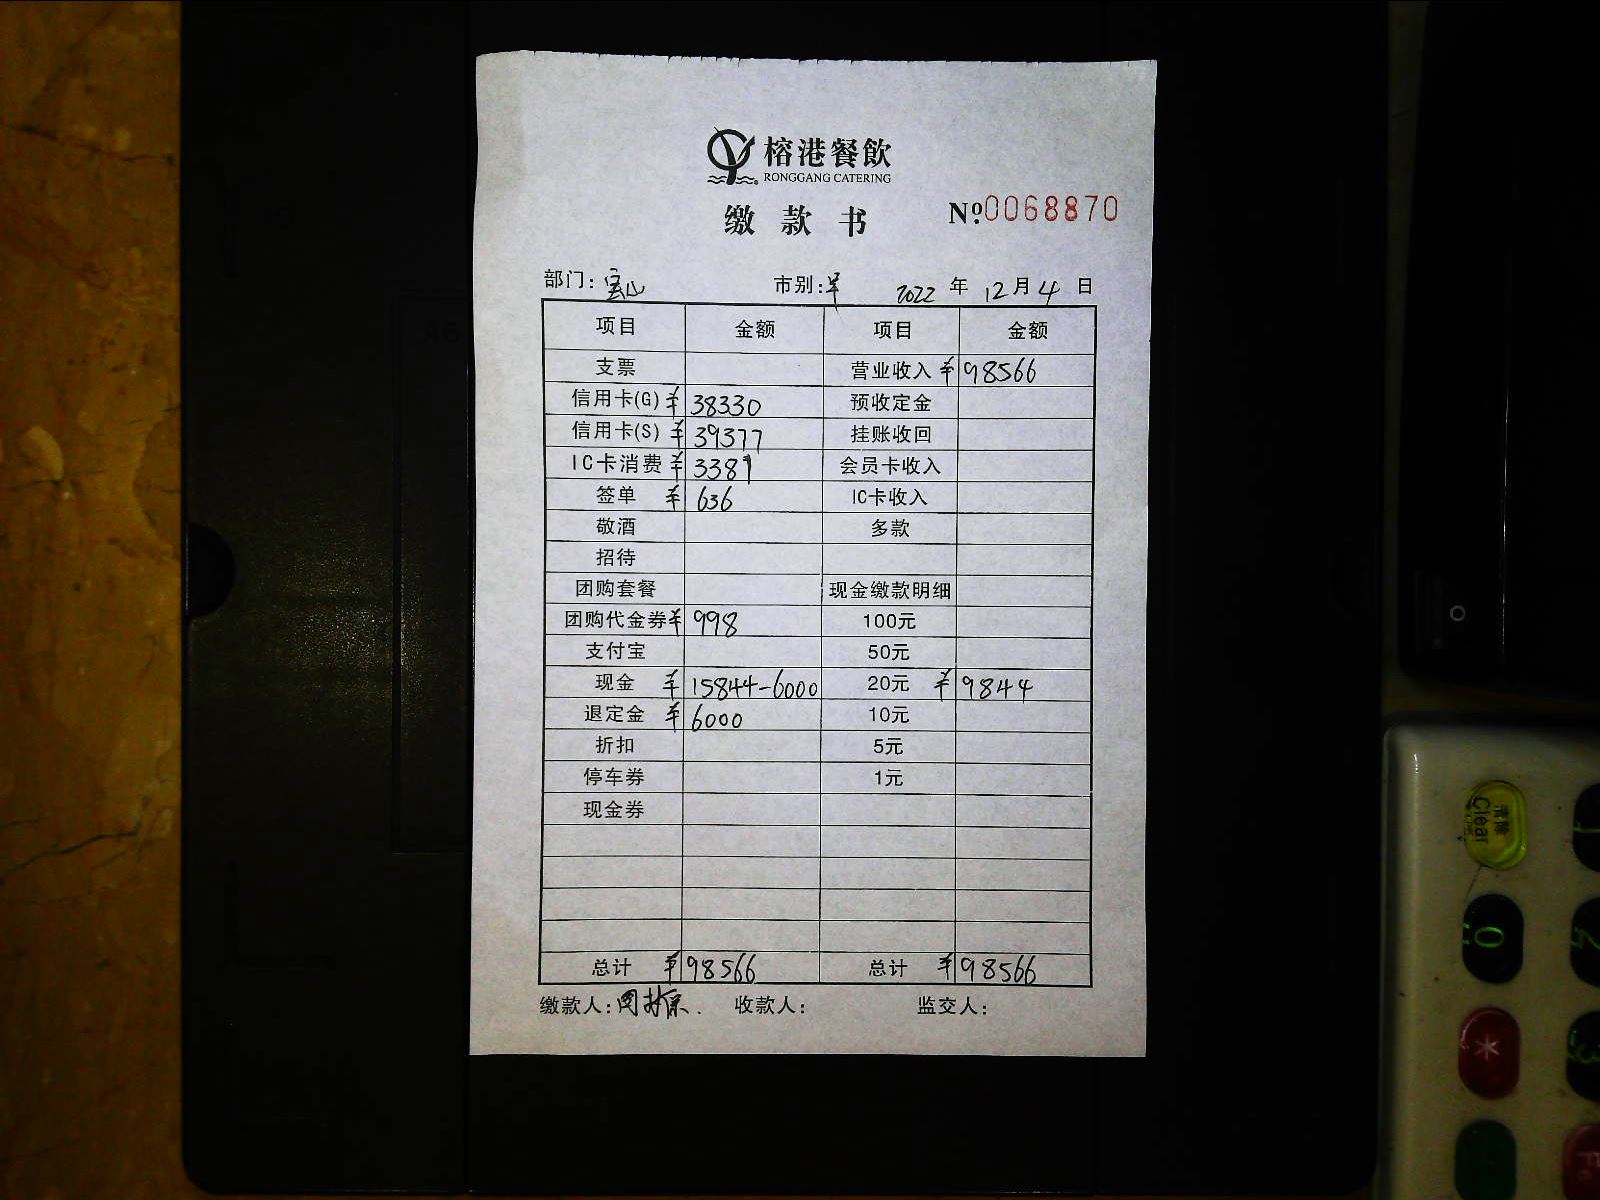 榕港餐飲
RONGGANG CATERING
缴款书 №0068870
部门：宝山 市别：早 2022年12月4日
项目 金额 项目 金额
支票 营业收入 ¥98566
信用卡(G) ¥38330 预收定金
信用卡(S) ¥39377 挂账收回
IC卡消费 ¥3381 会员卡收入
签单 ¥636 IC卡收入
敬酒 多款
招待
团购套餐 现金缴款明细
团购代金券 ¥998 100元
支付宝 50元
现金 ¥15844-6000 20元 ¥9844
退定金 ¥6000 10元
折扣 5元
停车券 1元
现金券
总计 ¥98566 总计 ¥98566
缴款人： 收款人： 监交人：
清除
Clear
0
2
*
3